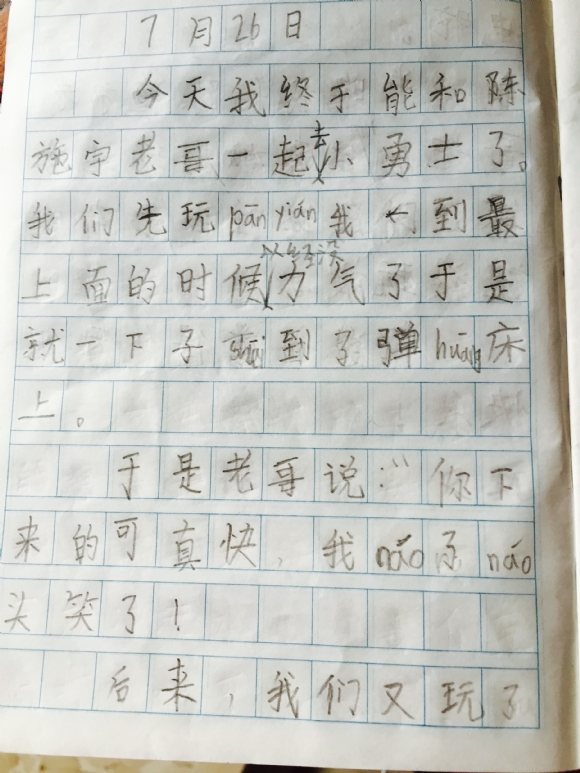 7月26日
今天我终于能和陈
施宇老哥一起去小勇士了。
我们先玩pān yián我个到最
上面的时候以经没力气了于是
就一下子 到了弹huáng床
上。
于是老哥说:“你下
来的可真快,我náo了náo
头笑了!
后来,我们又玩了